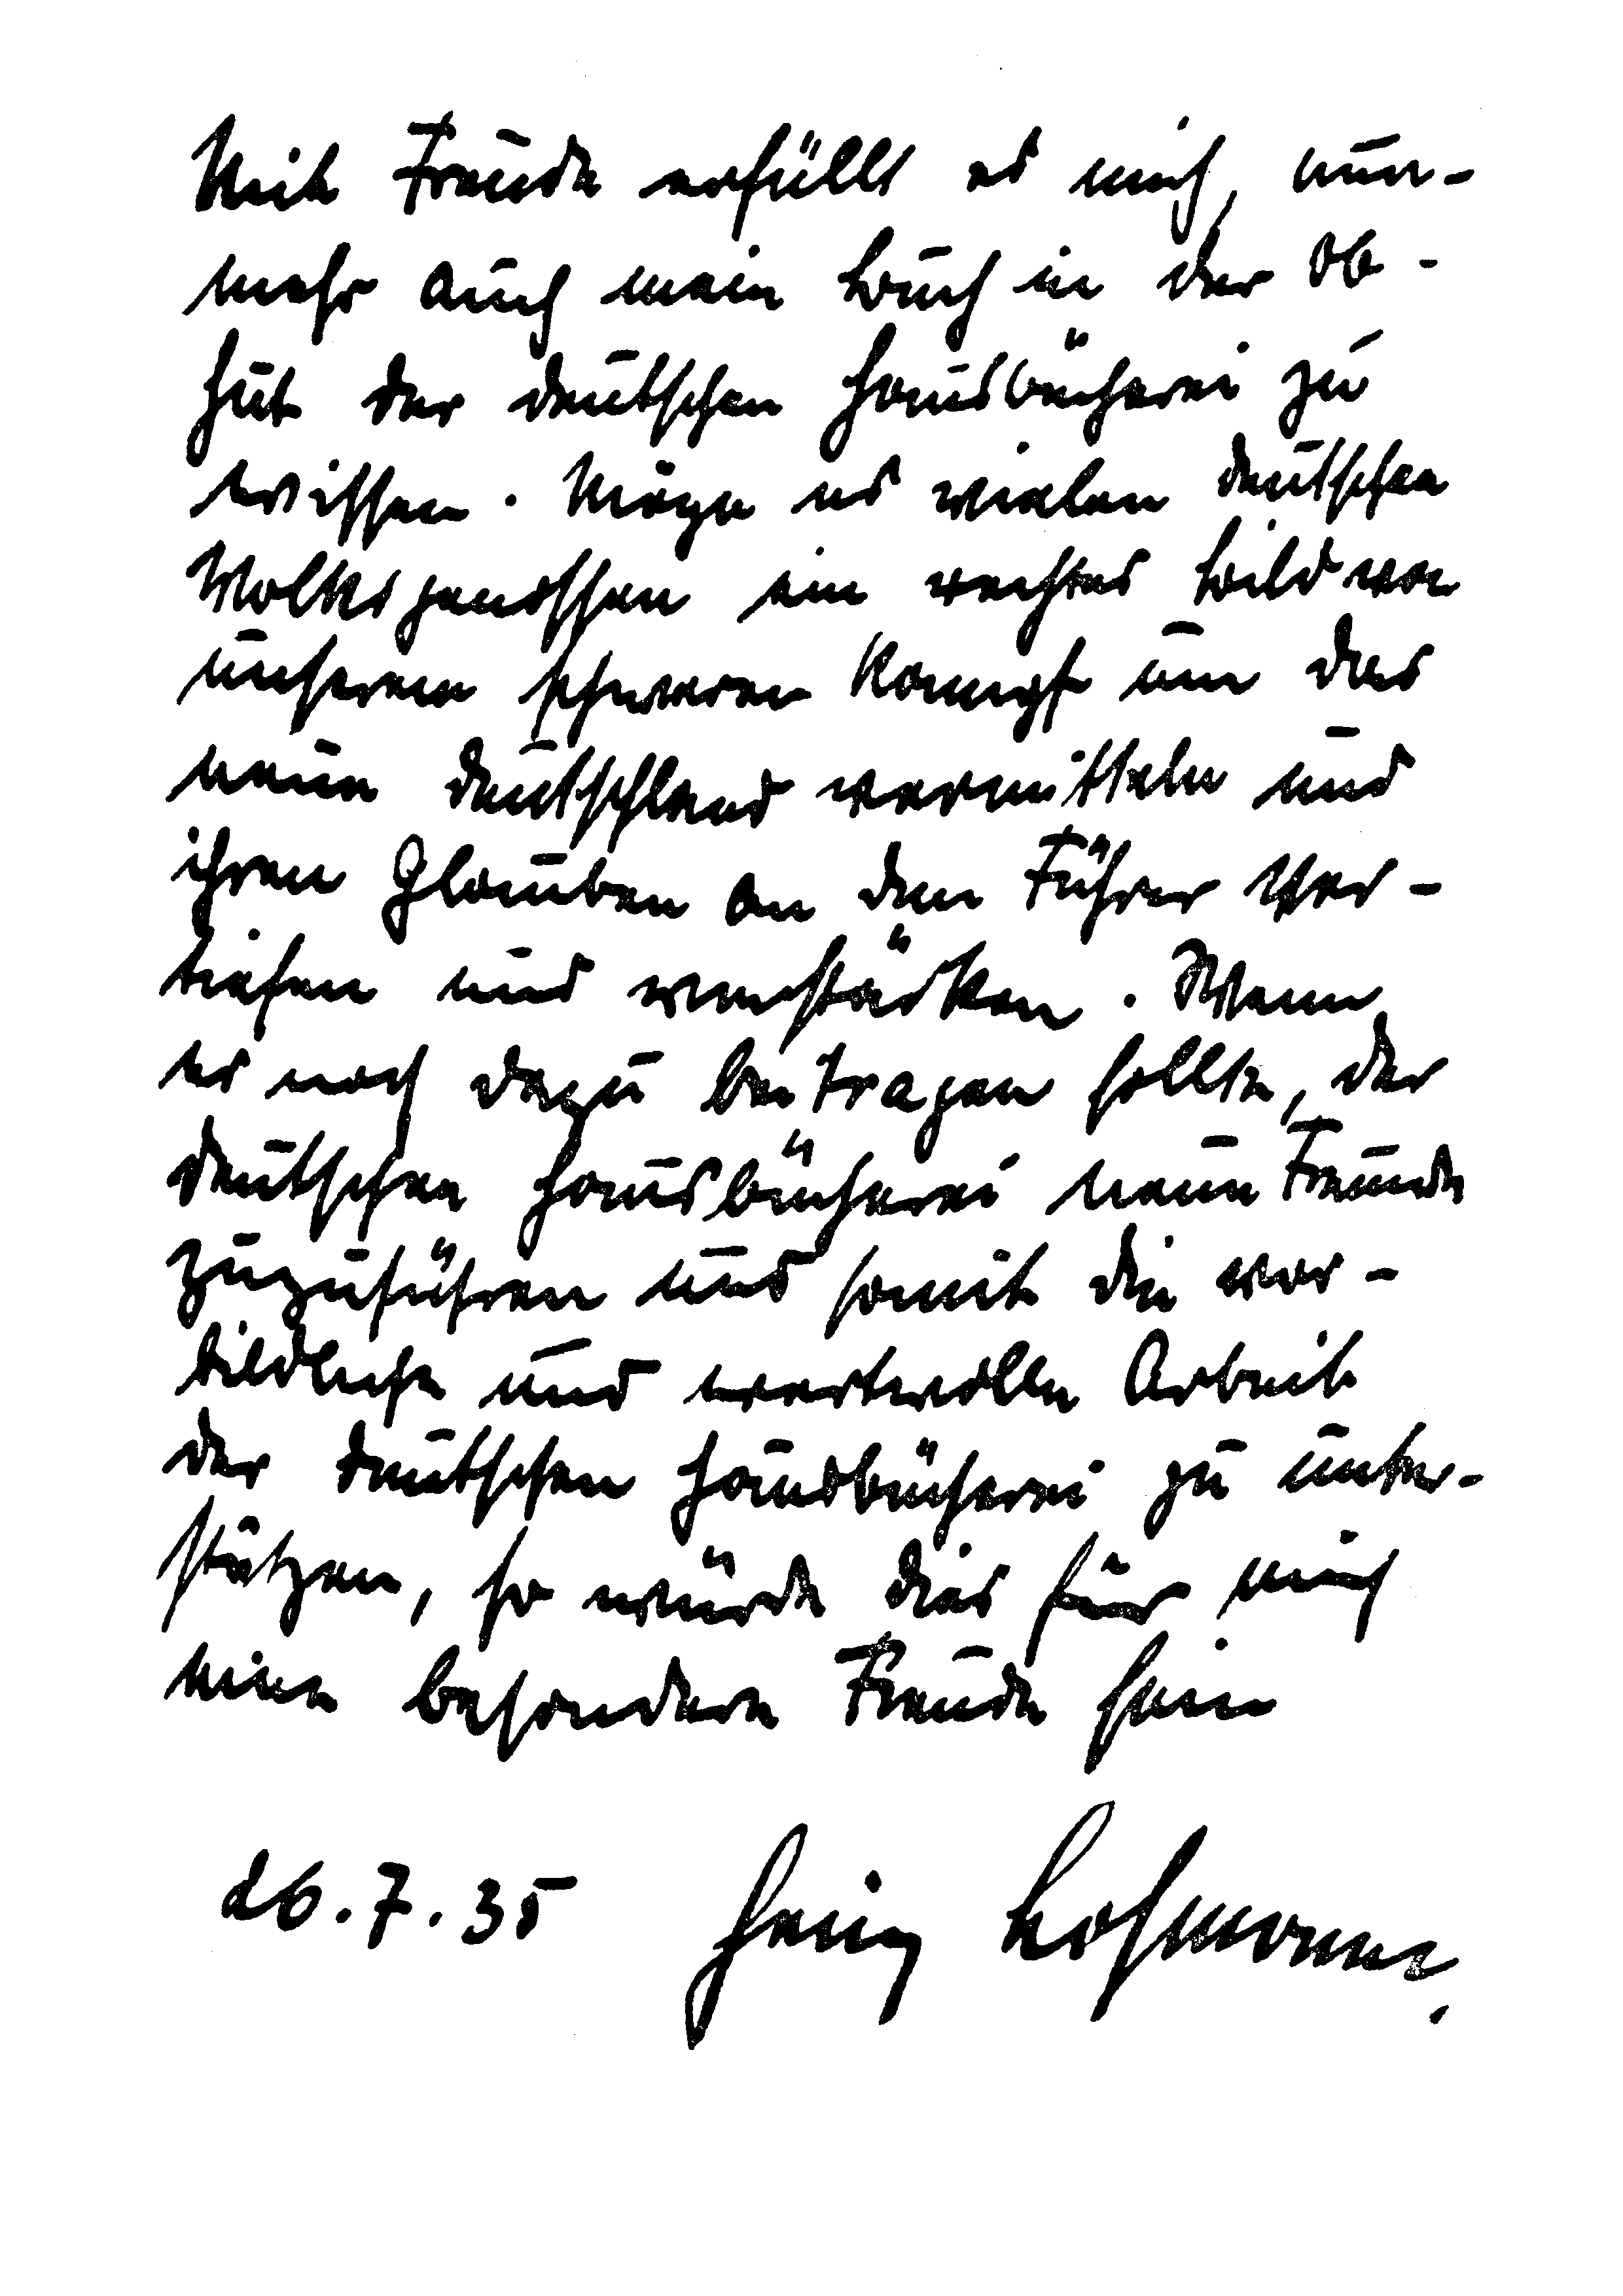 Mit Freude erfüllt es mich, nun-
mehr auch mein Buch in der Ob-
hut der deutschen Hausbücherei zu
wissen. Möge es vielen deutschen
Volksgenossen ein rechtes Bild von
unserem schweren Kampf um das
neue Deutschland vermitteln und
ihren Glauben an den Führer ver-
tiefen und verstärken. Wenn
es noch dazu beitragen sollte, der
deutschen Hausbücherei neue Freunde
zuzuführen und somit die vor-
bildliche und wertvolle Arbeit
der deutschen Hausbücherei zu unter-
stützen, so würde dies für mich
eine besondere Freude sein
26.7.35 Heinz Lohmann.